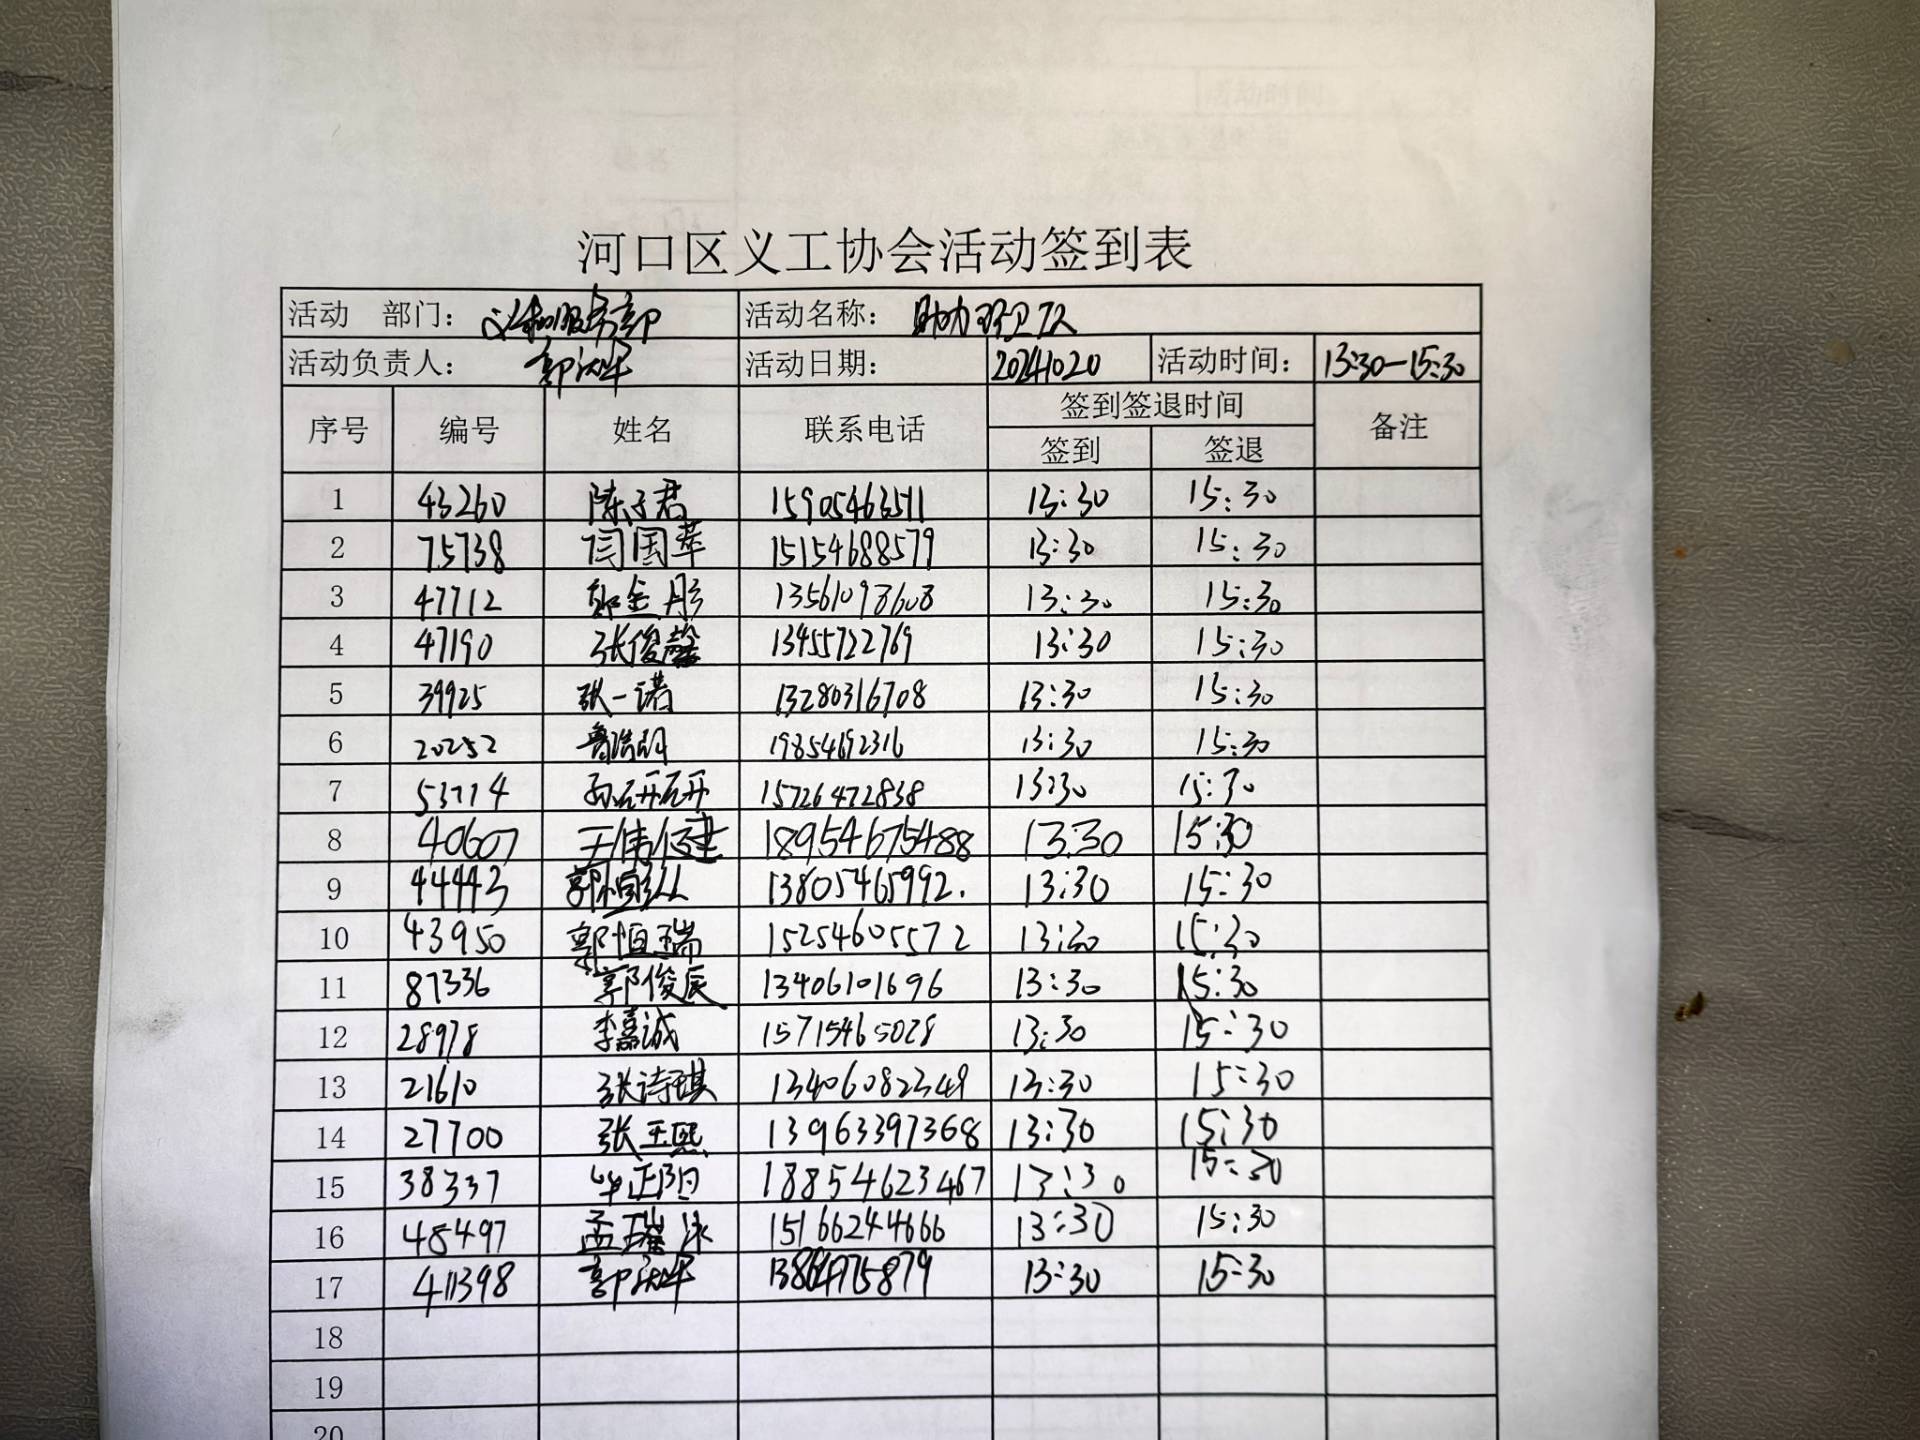 河口区义工协会活动签到表
活动 部门: 义和服务部 活动名称: 助力环卫
活动负责人: 郭洪华 活动日期: 20241020 活动时间: 13:30-15:30
序号 编号 姓名 联系电话 签到签退时间 备注
签到 签退
1 43260 陈子君 15905463511 13:30 15:30
2 75738 闫国苹 15154688579 13:30 15:30
3 47712 郭金彤 13561098608 13:30 15:30
4 47190 张俊馨 13455722769 13:30 15:30
5 39925 张一诺 13280316708 13:30 15:30
6 20252 鲁浩朗 19854692316 13:30 15:30
7 53714 孙研研 15726472838 13:30 15:30
8 40607 王伟健 18954675488 13:30 15:30
9 44443 郭恒弘 13805465992. 13:30 15:30
10 43950 郭恒瑞 15254605572 13:30 15:30
11 87336 郭俊辰 13406101696 13:30 15:30
12 28978 李嘉诚 15715465028 13:30 15:30
13 21610 张诗琪 13406082349 13:30 15:30
14 27700 张王熙 13963397368 13:30 15:30
15 38337 毕正阳 18854623467 13:30 15:30
16 48497 孟璀泳 15166244666 13:30 15:30
17 411398 郭洪华 13:30 15:30
18
19
20